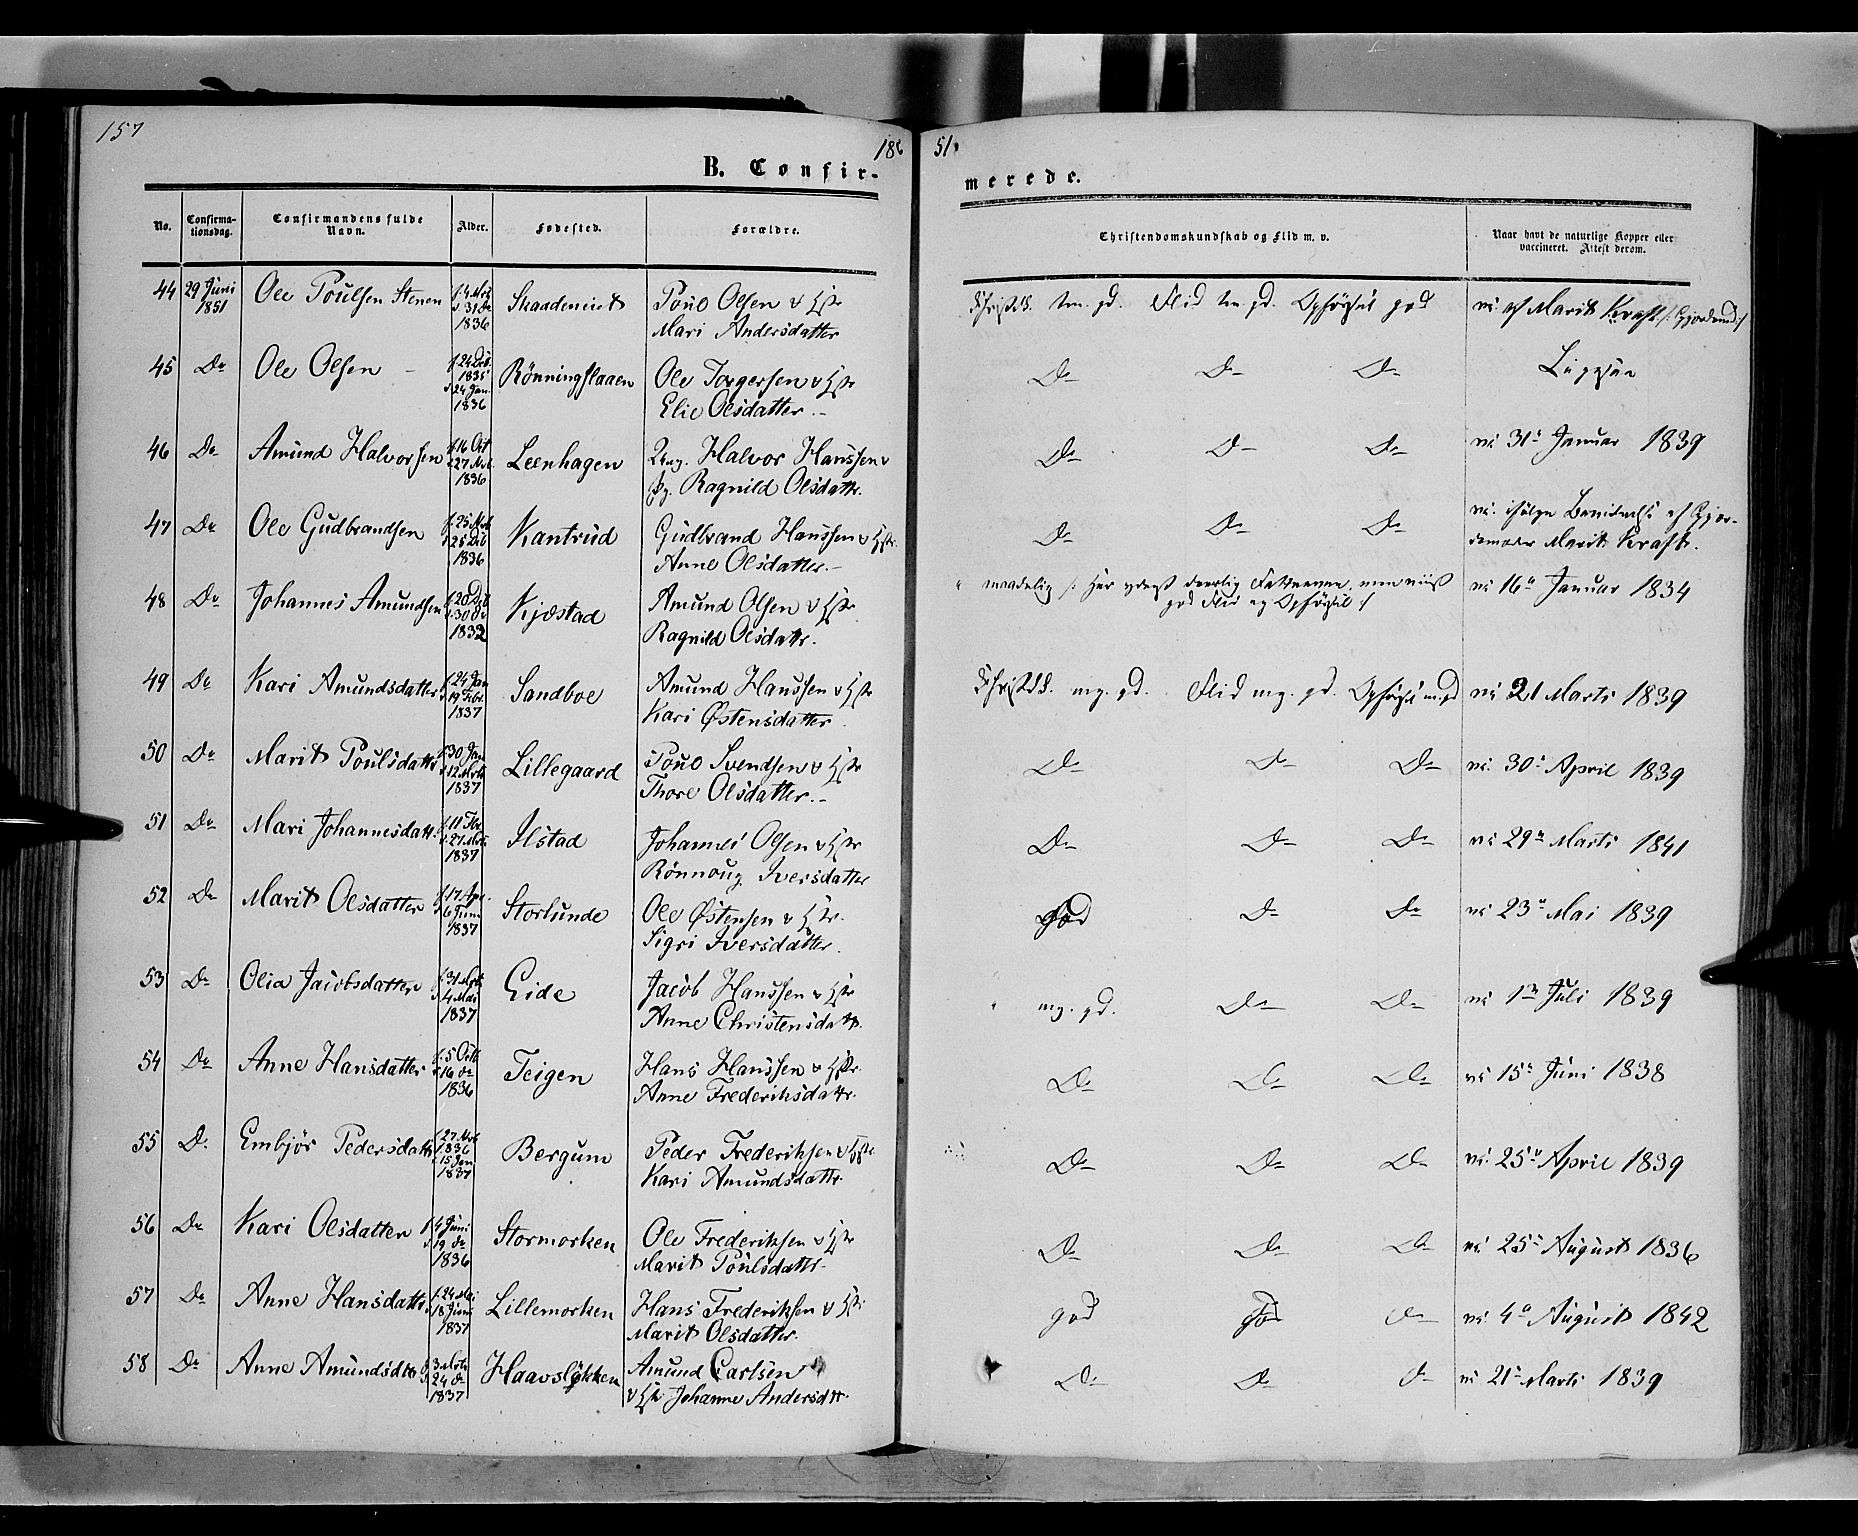 157
18
51.
B. Confir-
merede.
No. Confirma-tionsdag. Confirmandens fulde Navn. Alder. Fødested. Forældre. Christendomskundskab og Flid m. v. Naar havt de naturlige Kopper eller vaccineret. Attest derom.
44 29 Juni 1851 Ole Poulsen Stenen 1836 Poul Olsen & Hstr Mari Andersdatter Christdk. tm. gd. Flid tm. gd. Opførsel god vc. af Marit Kraft
45 Do Ole Olsen f. 24 Dcb. 1835 d. 24 Jan. 1836 Rönningslaaen Ole Torgersen & Hstr Elie Olsdatter.- Do Do Do
46 Do Amund Halvorsen f. 16 Oct d. 27 Nov. 1836 Leenhagen Ung. Halvor Hanssen & Pg. Ragnild Olsdattr. Do Do Do vc. 31 Januar 1839
47 Do Ole Gudbrandsen f. 25 Nov d. 25 Dcb 1836 Kantrud Gudbrand Hanssen & Hstr. Anne Olsdatter.- Do Do Do vc. ifølge Bevidnelse af Gjor-demoder Marit Kraft.
48 Do Johannes Amundsen f. 20 Dcb d. 30 do 1832 Kjøstad Amund Olsen & Hstr. Ragnild Olsdattr. maadelig /: har yderst daarlig Fatteevne, men viist god Flid og Opførsel :/ vc 16 Januar 1834
49 Do Kari Amundsdatter f. 24 Jan d. 19 Febr. 1837 Sandboe Amund Hanssen & Hstr Kari Østensdatter. Christdk. mg. gd. Flid mg. gd. Opførsel m. gd vc 21 Marts 1839
50 Do Marit Poulsdattr f. 30 Jan d. 12 Mrts 1837 Lillegaard Poul Svendsen & Hstr Thore Olsdatter.- Do Do Do vc. 30 April 1839
51 Do Mari Johannesdatt. f. 11 Fbr d. 27 Mrts 1837 Ilstad Johannes Olsen & Hstr Rönnoug Iversdatter Do Do Do vc 29 Marts 1841
52 Do Marit Olsdatter f. 17 Apr. d. 6 Juni 1837 Storlunde Ole Østensen & Hstr. Sigri Iversdatter. god Do Do vc 23 Mai 1839
53 Do Olia Jacobsdatter f. 31 Mrts d. 4 Mai 1837 Eide Jacob Hanssen & Hstr Anne Christensdattr. mg. gd. Do Do vc 1 Juli 1839
54 Do Anne Hansdatter f. 5 Octb d. 16 do 1836 Teigen Hans Hanssen & Hstr. Anne Frederiksdattr. Do Do Do vc 15 Juni 1838
55 Do. Embjör Pedersdattr f. 27 Nov 1836 d. 15 Jan 1837 Bergum Peder Frederiksen & Hstr. Kari Amundsdattr. Do Do Do vc. 25 April 1839
56 Do Kari Olsdatter f. 4 Juni d. 19 do 1836 Stormorken Ole Frederiksen & Hstr Marit Poulsdattr. Do Do Do vc. 25 August 1836
57 Do Anne Hansdattr f. 24 Mai d. 18 Juni 1837 Lillemorken Hans Frederiksen & Hstr. Marit Olsdatter. god god Do vc. 4 August 1842
58 Do Anne Amundsdtr f. 3 Mrts d. 24 do 1837 Haavsløkken Amund Carlsen & Hstr Johanne Andersdtr. Do Do Do vc 21 Marts 1839